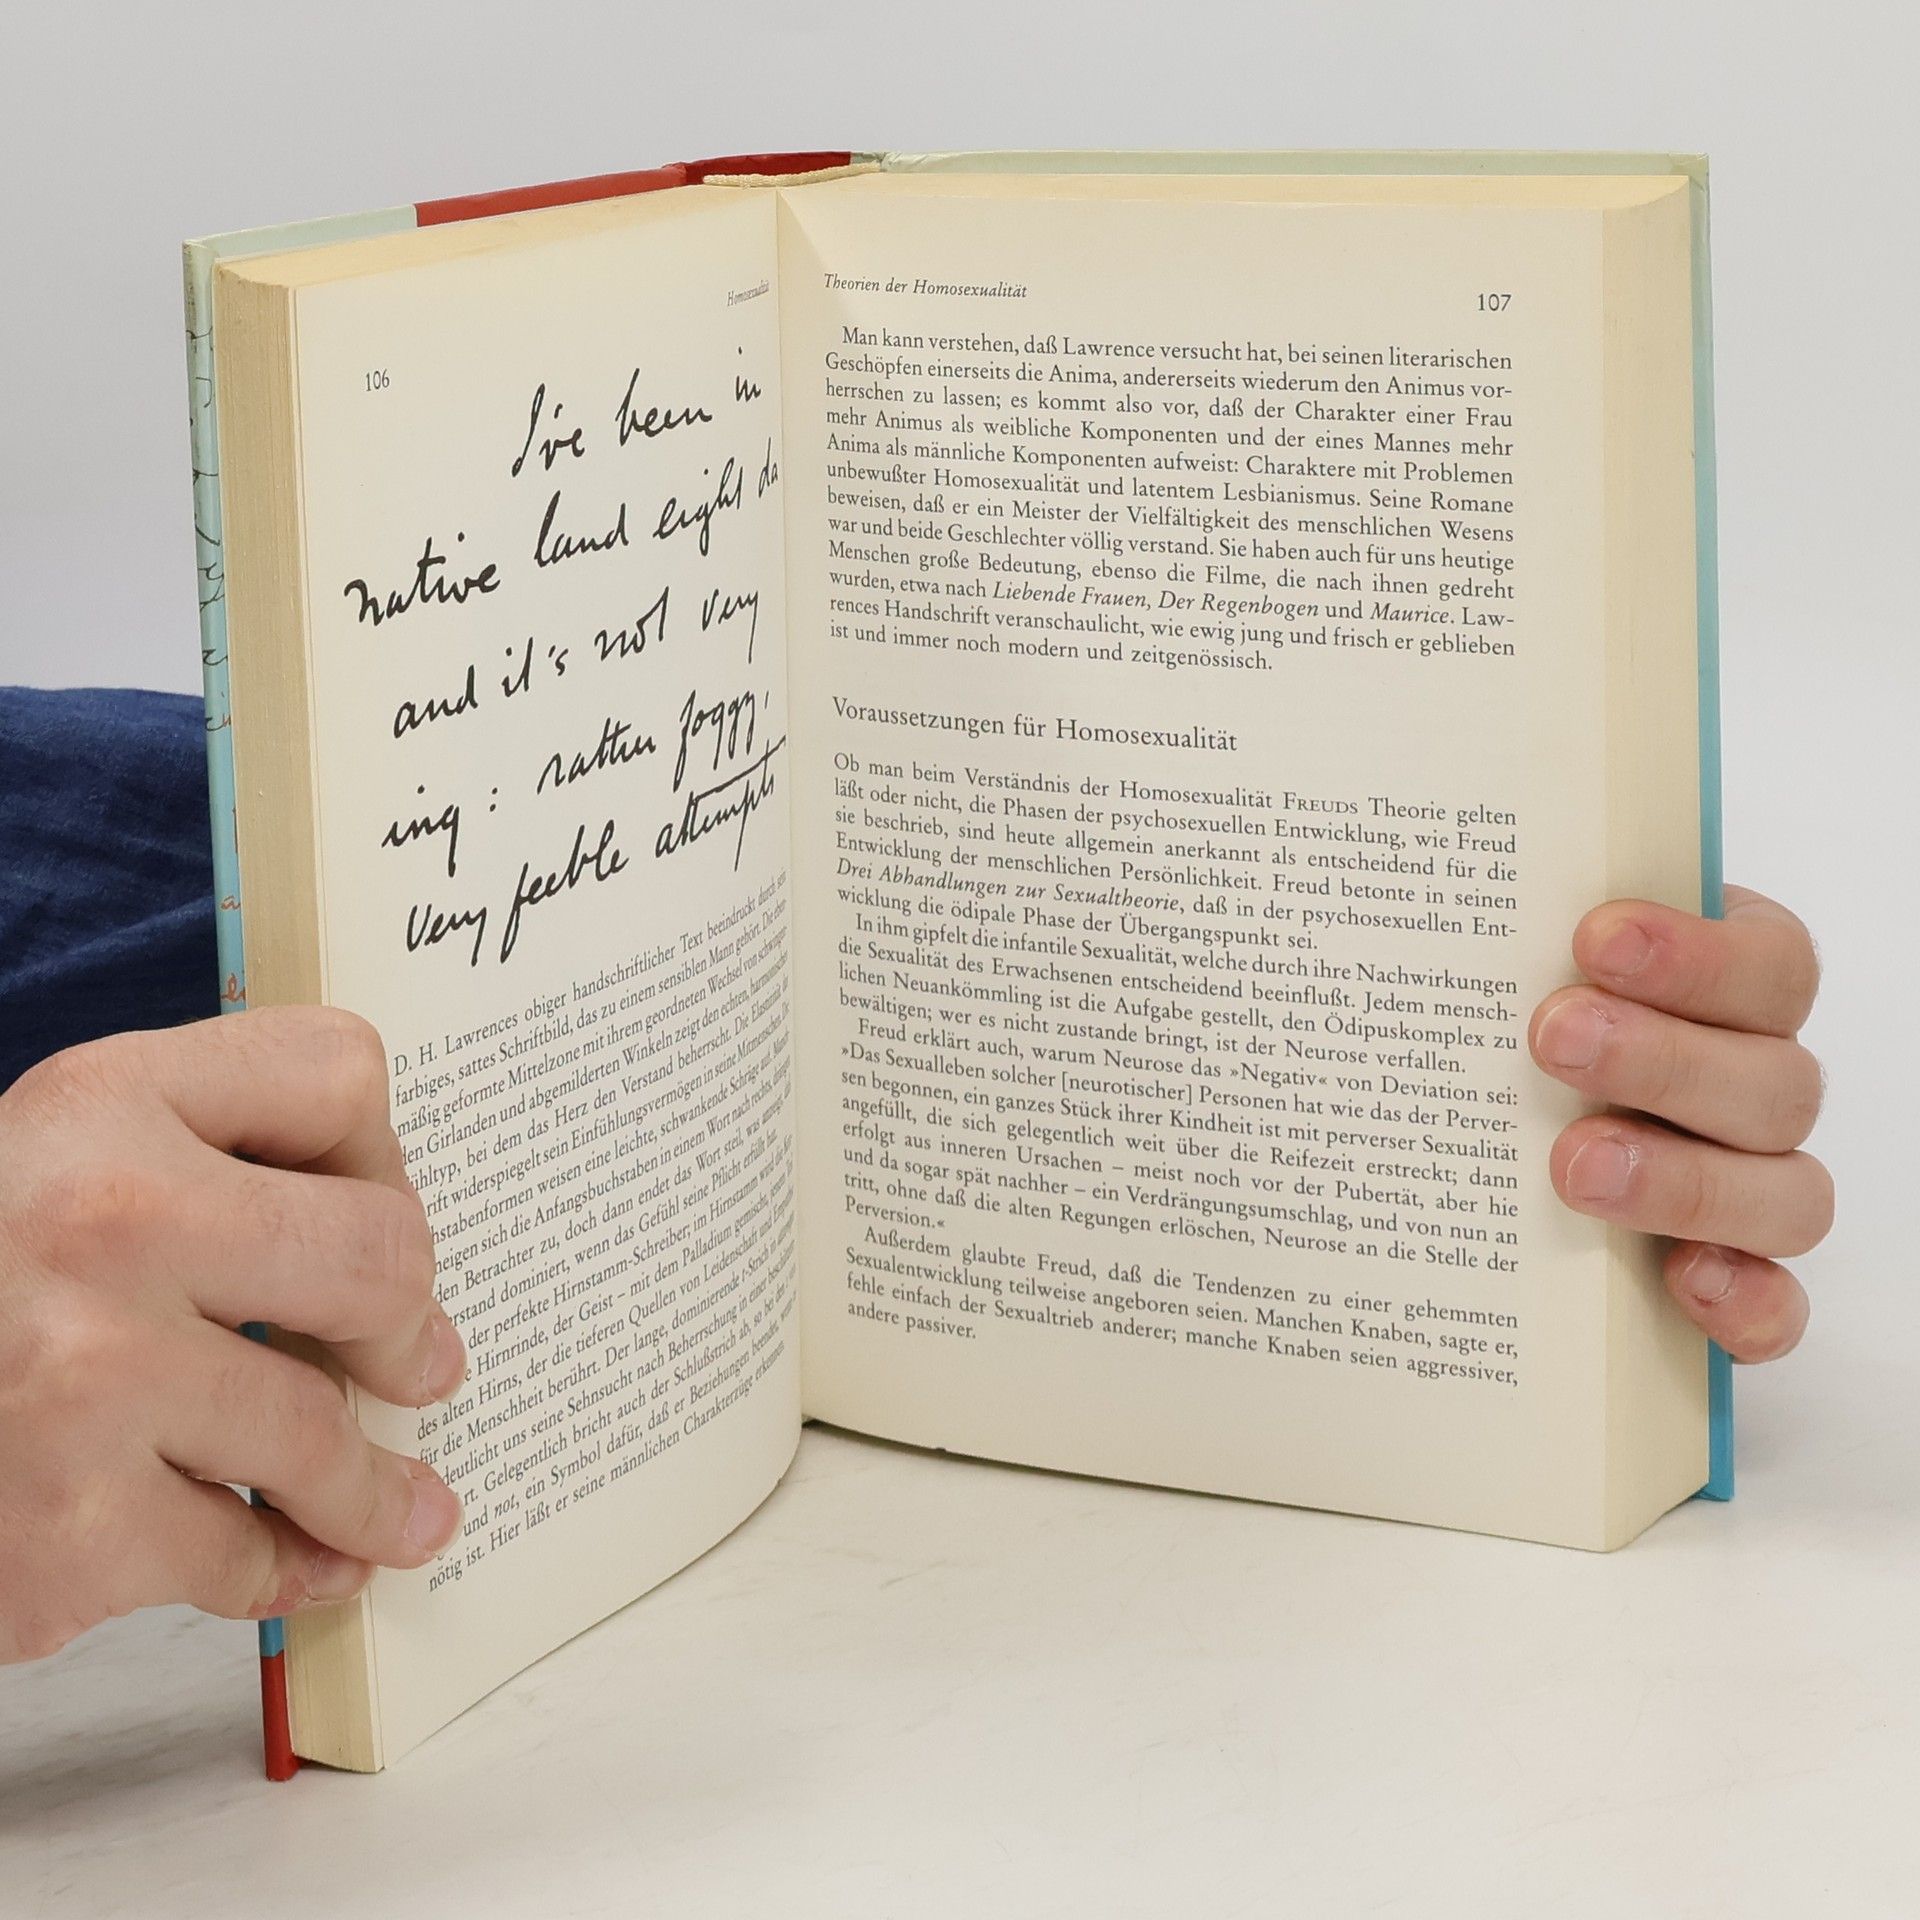 106
Homosexualität
I've been in
native land eight da
and it's not very
ing: rather foggy,
very feeble attempts
D. H. Lawrences obiger handschriftlicher Text beeindruckt durch sein
farbiges, sattes Schriftbild, das zu einem sensiblen Mann gehört. Die eben-
mäßig geformte Mittelzone mit ihrem geordneten Wechsel von schwingen-
den Girlanden und abgemilderten Winkeln zeigt den echten, harmonischen
ühltyp, bei dem das Herz den Verstand beherrscht. Die Elastizität der
rift widerspiegelt sein Einfühlungsvermögen in seine Mitmenschen. Die
hstabenformen weisen eine leichte, schwankende Schräge auf. Manch
neigen sich die Anfangsbuchstaben in einem Wort nach rechts, drängen
den Betrachter zu, doch dann endet das Wort steil, was anzeigt, daß
erstand dominiert, wenn das Gefühl seine Pflicht erfüllt hat.
der perfekte Hirnstamm-Schreiber; im Hirnstamm wird die
e Hirnrinde, der Geist – mit dem Palladium gemischt, jenem Teil
des alten Hirns, der die tieferen Quellen von Leidenschaft und
für die Menschheit berührt. Der lange, dominierende t-Strich in attempts
deutlicht uns seine Sehnsucht nach Beherrschung in einer bestimmten
rt. Gelegentlich bricht auch der Schlußstrich ab, so bei den t von
und not, ein Symbol dafür, daß er Beziehungen beendet, wenn es
nötig ist. Hier läßt er seine männlichen Charakterzüge erkennen.
Theorien der Homosexualität
107
Man kann verstehen, daß Lawrence versucht hat, bei seinen literarischen
Geschöpfen einerseits die Anima, andererseits wiederum den Animus vor-
herrschen zu lassen; es kommt also vor, daß der Charakter einer Frau
mehr Animus als weibliche Komponenten und der eines Mannes mehr
Anima als männliche Komponenten aufweist: Charaktere mit Problemen
unbewußter Homosexualität und latentem Lesbianismus. Seine Romane
beweisen, daß er ein Meister der Vielfältigkeit des menschlichen Wesens
war und beide Geschlechter völlig verstand. Sie haben auch für uns heutige
Menschen große Bedeutung, ebenso die Filme, die nach ihnen gedreht
wurden, etwa nach Liebende Frauen, Der Regenbogen und Maurice. Law-
rences Handschrift veranschaulicht, wie ewig jung und frisch er geblieben
ist und immer noch modern und zeitgenössisch.
Voraussetzungen für Homosexualität
Ob man beim Verständnis der Homosexualität FREUDS Theorie gelten
läßt oder nicht, die Phasen der psychosexuellen Entwicklung, wie Freud
sie beschrieb, sind heute allgemein anerkannt als entscheidend für die
Entwicklung der menschlichen Persönlichkeit. Freud betonte in seinen
Drei Abhandlungen zur Sexualtheorie, daß in der psychosexuellen Ent-
wicklung die ödipale Phase der Übergangspunkt sei.
In ihm gipfelt die infantile Sexualität, welche durch ihre Nachwirkungen
die Sexualität des Erwachsenen entscheidend beeinflußt. Jedem mensch-
lichen Neuankömmling ist die Aufgabe gestellt, den Ödipuskomplex zu
bewältigen; wer es nicht zustande bringt, ist der Neurose verfallen.
Freud erklärt auch, warum Neurose das »Negativ« von Deviation sei:
»Das Sexualleben solcher [neurotischer] Personen hat wie das der Perver-
sen begonnen, ein ganzes Stück ihrer Kindheit ist mit perverser Sexualität
angefüllt, die sich gelegentlich weit über die Reifezeit erstreckt; dann
erfolgt aus inneren Ursachen – meist noch vor der Pubertät, aber hie
und da sogar spät nachher – ein Verdrängungsumschlag, und von nun an
tritt, ohne daß die alten Regungen erlöschen, Neurose an die Stelle der
Perversion.«
Außerdem glaubte Freud, daß die Tendenzen zu einer gehemmten
Sexualentwicklung teilweise angeboren seien. Manchen Knaben, sagte er,
fehle einfach der Sexualtrieb anderer; manche Knaben seien aggressiver,
andere passiver.